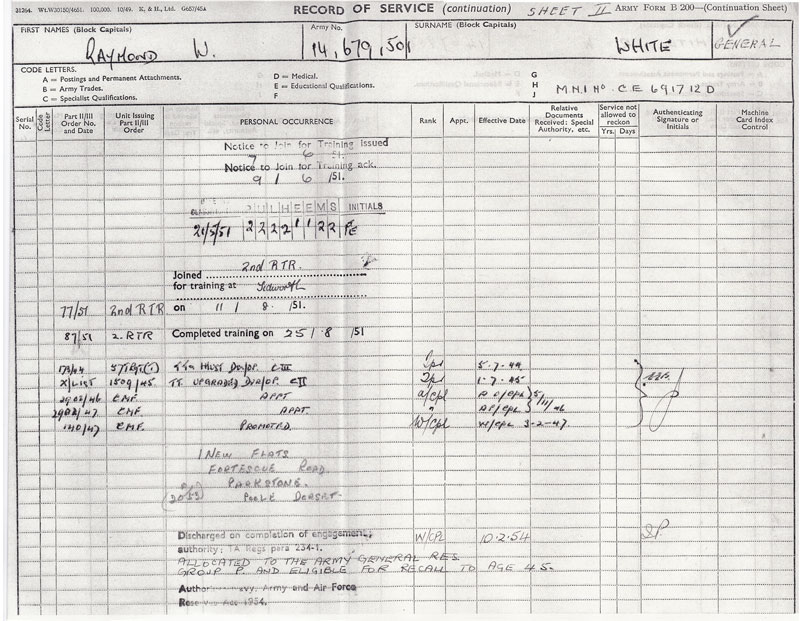 31264. Wt.W30150/4651. 100,000. 10/49. K. & H., Ltd. G657/45A
RECORD OF SERVICE (continuation) SHEET II ARMY FORM B 200—(Continuation Sheet)
FIRST NAMES (Block Capitals) Army No. SURNAME (Block Capitals)
RAYMOND W. 14,679,501 WHITE GENERAL
CODE LETTERS.
A = Postings and Permanent Attachments. D = Medical. G
B = Army Trades. E = Educational Qualifications. H M.N.I No. C.E 691712 D
C = Specialist Qualifications. F J
Serial No. Code Letter Part II/III Order No. and Date Unit Issuing Part II/III Order PERSONAL OCCURRENCE Rank Appt. Effective Date Relative Documents Received: Special Authority, etc. Service not allowed to reckon Yrs. Days Authenticating Signature or Initials Machine Card Index Control
Notice to Join for Training issued
7 6 51.
Notice to Join for Training ack.
9 / 6 /51.
P U L H E E M S INITIALS
21/5/51 2 2 2 2 1 1 2 2
Joined 2nd RTR.
for training at Tidworth
77/51 2nd RTR on 11 / 8 /51.
87/51 2. RTR Completed training on 25 / 8 /51
5.7.44
X/LIST 1509/45 TT UPGRADED CII 1.7.45
2902/46 CMF. APPT a/Cpl
2902/47 CMF. APPT. " 5/11/46
140/47 CMF. PROMOTED. W/Cpl W/CPL 3-2-47
1 NEW FLATS
FORTESQUE ROAD.
PARKSTONE.
POOLE DORSET-
Discharged on completion of engagement; W/CPL 10.2.54
authority; TA Regs para 234-1.
ALLOCATED TO THE ARMY GENERAL RES
GROUP P. AND ELIGIBLE FOR RECALL TO AGE 45.
Navy, Army and Air Force
Act 1954.